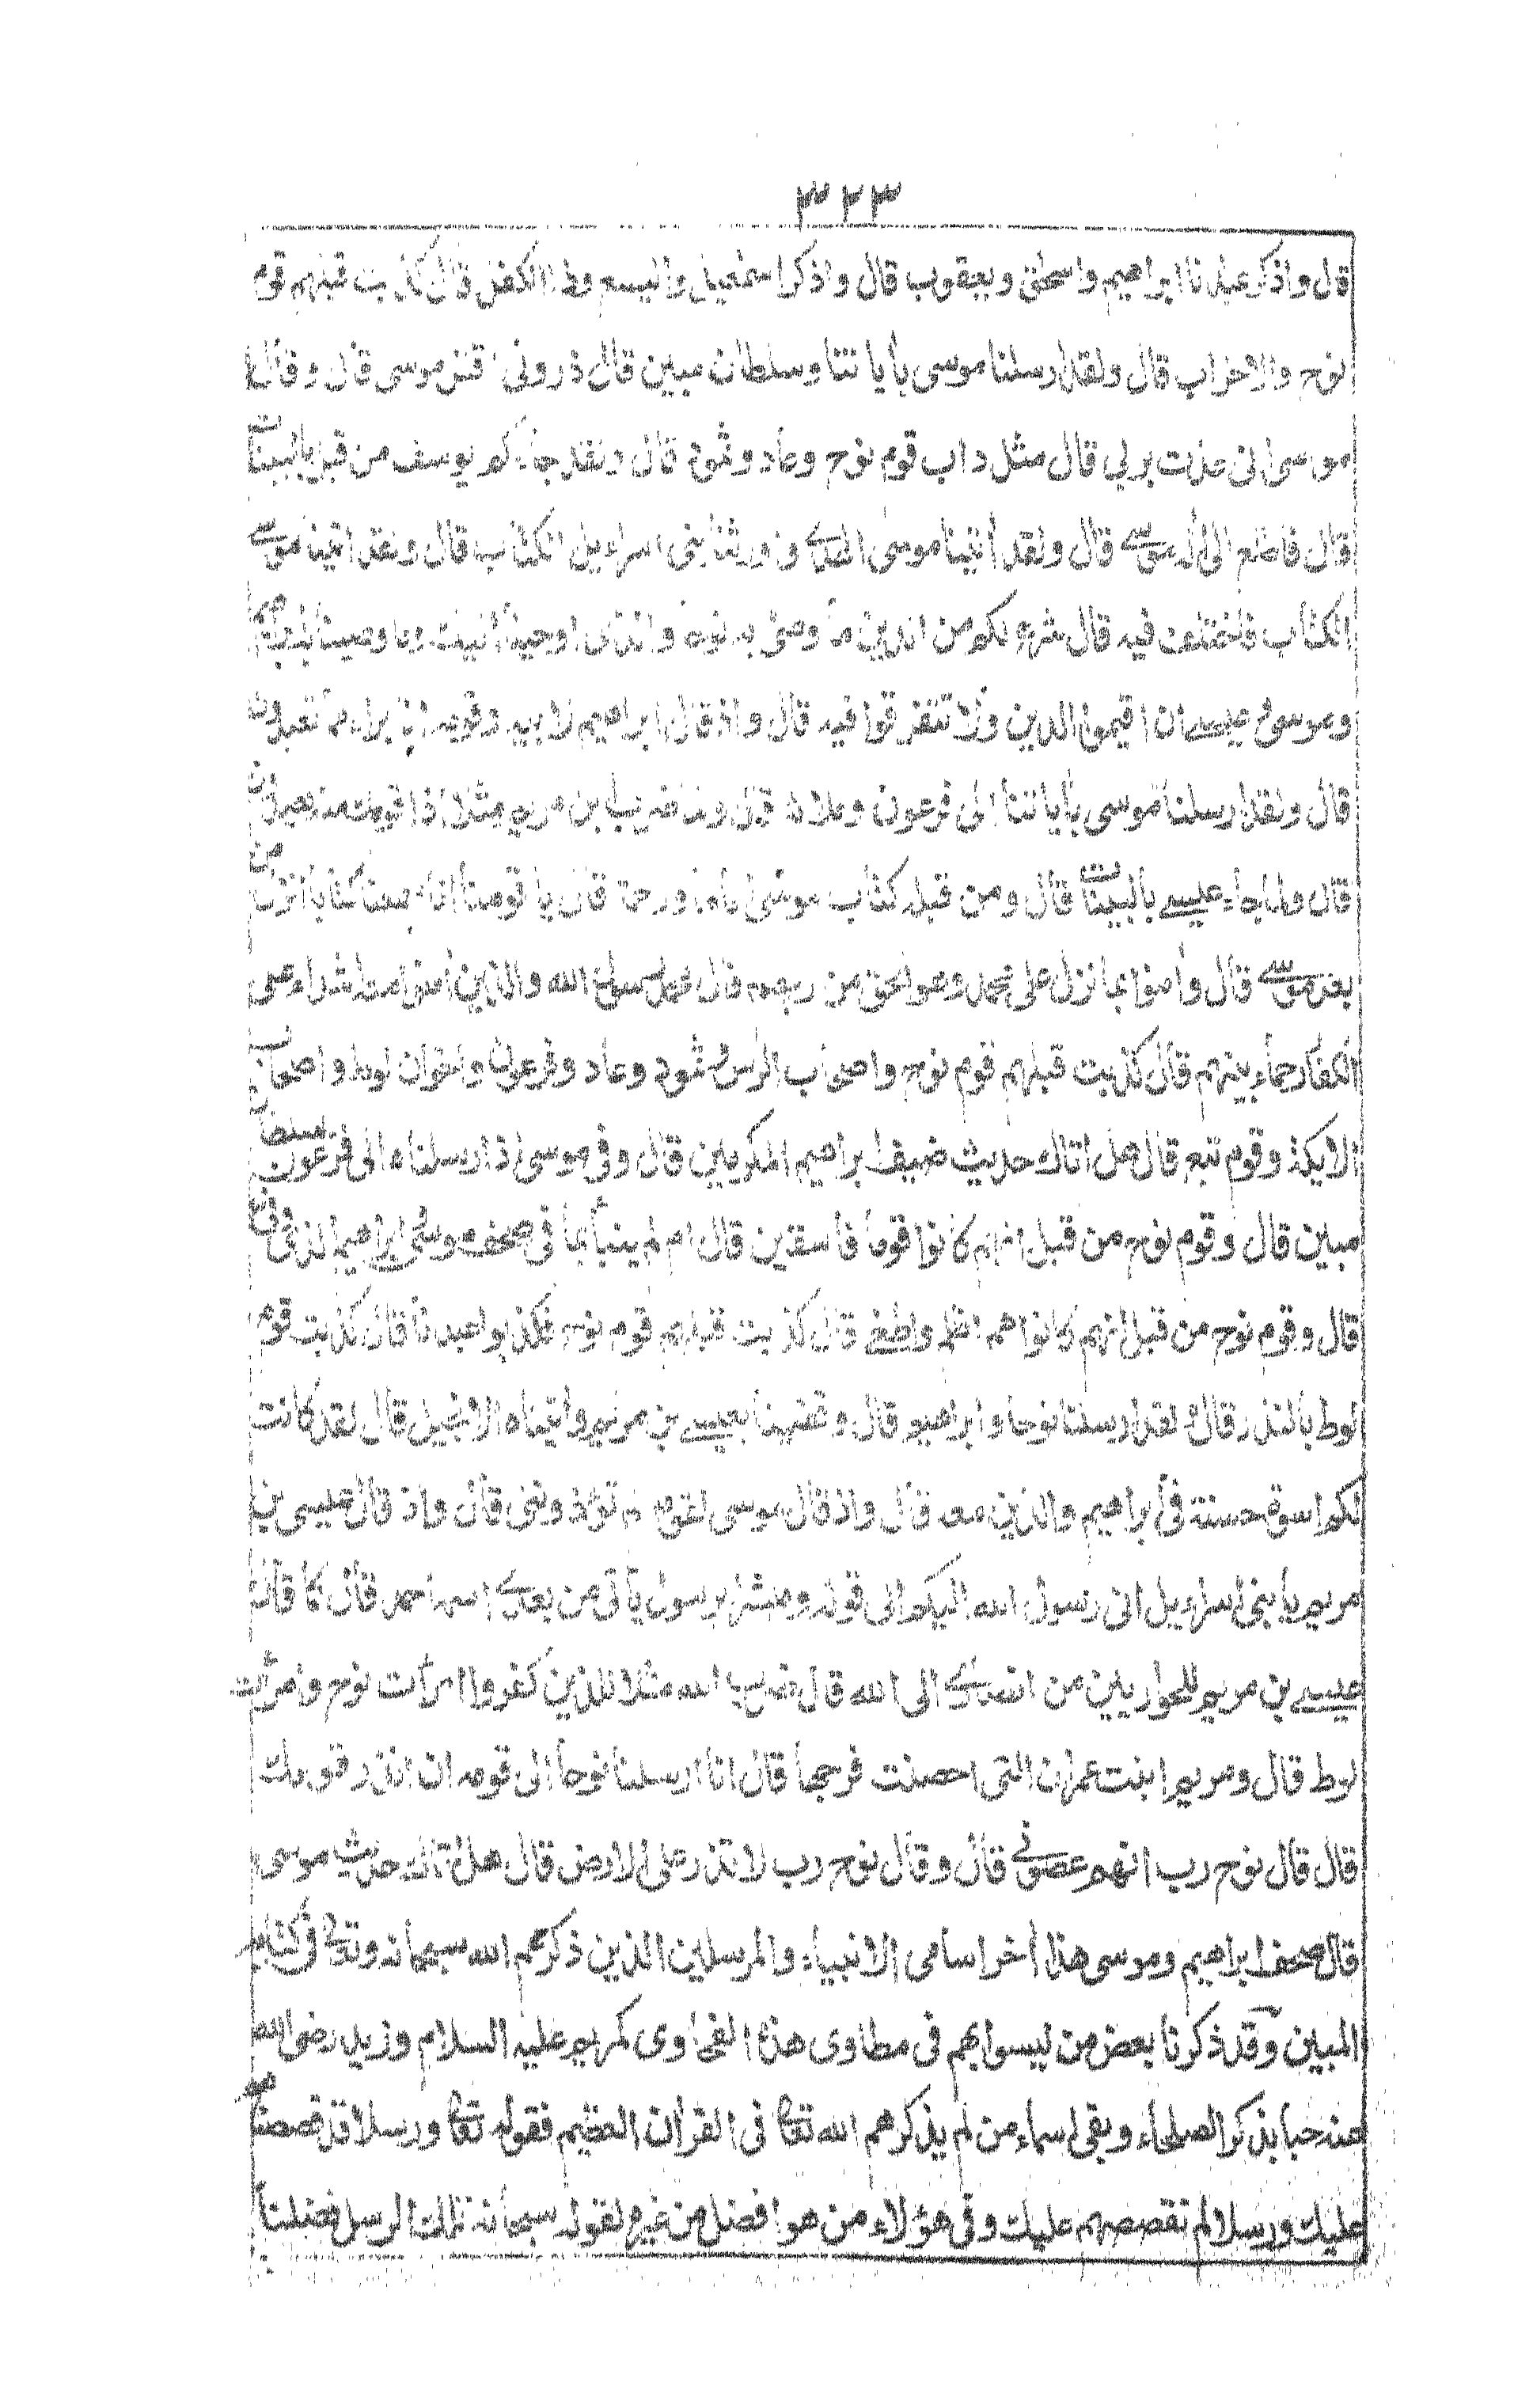 ٣٢٣
قال واذكر عبادنا ابراهيم واسحق ويعقوب قال واذكر اسمعيل واليسع وذا الكفل قال كذبت قبلهم قوم
نوح والاحزاب قال ولقد ارسلنا موسى بأياتنا وسلطان مبين قال ذرونى اقتل موسى قال وقال
موسى انى عذت بربي قال مثل داب قوم نوح وعاد وثمود قال ولقد جاءكم يوسف من قبل بالبينات
قال فاطلع الى اله موسى قال ولقد أتينا موسى الهدى واورثنا بنى اسراءيل الكتاب قال ولقد اتينا موسى
الكتاب فاختلف فيه قال شرع لكم من الدين ما وصى به نوحا والذى اوحينا اليك وما وصينا به ابراهيم
وموسى وعيسى ان اقيموا الدين ولا تتفرقوا فيه قال واذ قال ابراهيم لابيه وقومه اننى براء مما تعبدون
قال ولقد ارسلنا موسى بأياتنا الى فرعون وملائه قال ولما ضرب ابن مريم مثلا اذا قومك منه يصدون
قال ولما جاء عيسى بالبينات قال ومن قبله كتاب موسى اماما ورحمة قال يا قومنا انا سمعنا كتابا انزل من
بعد موسى قال وأمنوا بما نزل على محمد وهو الحق من ربهم قال محمد رسول الله والذين أمنوا معه اشداء على
الكفار رحماء بينهم قال كذبت قبلهم قوم نوح واصحاب الرس وثمود وعاد وفرعون واخوان لوط واصحاب
الايكة وقوم تبع قال هل اتاك حديث ضيف ابراهيم المكرمين قال وفى موسى اذ ارسلناه الى فرعون بسلطان
مبين قال وقوم نوح من قبل انهم كانوا قوما فاسقين قال ام لم ينبأ بما فى صحف موسى وابراهيم الذى وفى
قال وقوم نوح من قبل انهم كانوا هم اظلم واطغى قال كذبت قبلهم قوم نوح فكذبوا عبدنا قال كذبت قوم
لوط بالنذر قال ولقد ارسلنا نوحا وابراهيم قال وقفينا بعيسى بن مريم واتيناه الانجيل قال لقد كانت
لكم اسوة حسنة فى ابراهيم والذين معه قال واذ قال موسى لقومه لم تؤذوننى قال واذ قال عيسى بن
مريم يا بنى اسراءيل انى رسول الله اليكم الى قوله ومبشرا برسول يأتى من بعدى اسمه احمد قال كما قال
عيسى بن مريم للحواريين من انصارى الى الله قال ضرب الله مثلا للذين كفروا امرأت نوح وامرأت
لوط قال ومريم ابنت عمران التى احصنت فرجها قال انا ارسلنا نوحا الى قومه ان انذر قومك
قال قال نوح رب انهم عصونى قال وقال نوح رب لا تذر على الارض قال هل اتاك حديث موسى
قال صحف ابراهيم وموسى هذا أخر اسامى الانبياء والمرسلين الذين ذكرهم الله سبحانه وتعالى فى كتابه
المبين وقد ذكرنا بعض من ليسوا بهم فى مطاوى هذا الفحاوى كمريم عليه السلام وزيد رضى الله
عنه حبا بذكر الصلحاء وبقى اسماء من لم يذكرهم الله تعا فى القرأن العظيم فقوله تعا ورسلا قد قصصناهم
عليك ورسلا لم نقصصهم عليك وفى هؤلاء من هو افضل من غيره لقوله سبحانه تلك الرسل فضلنا